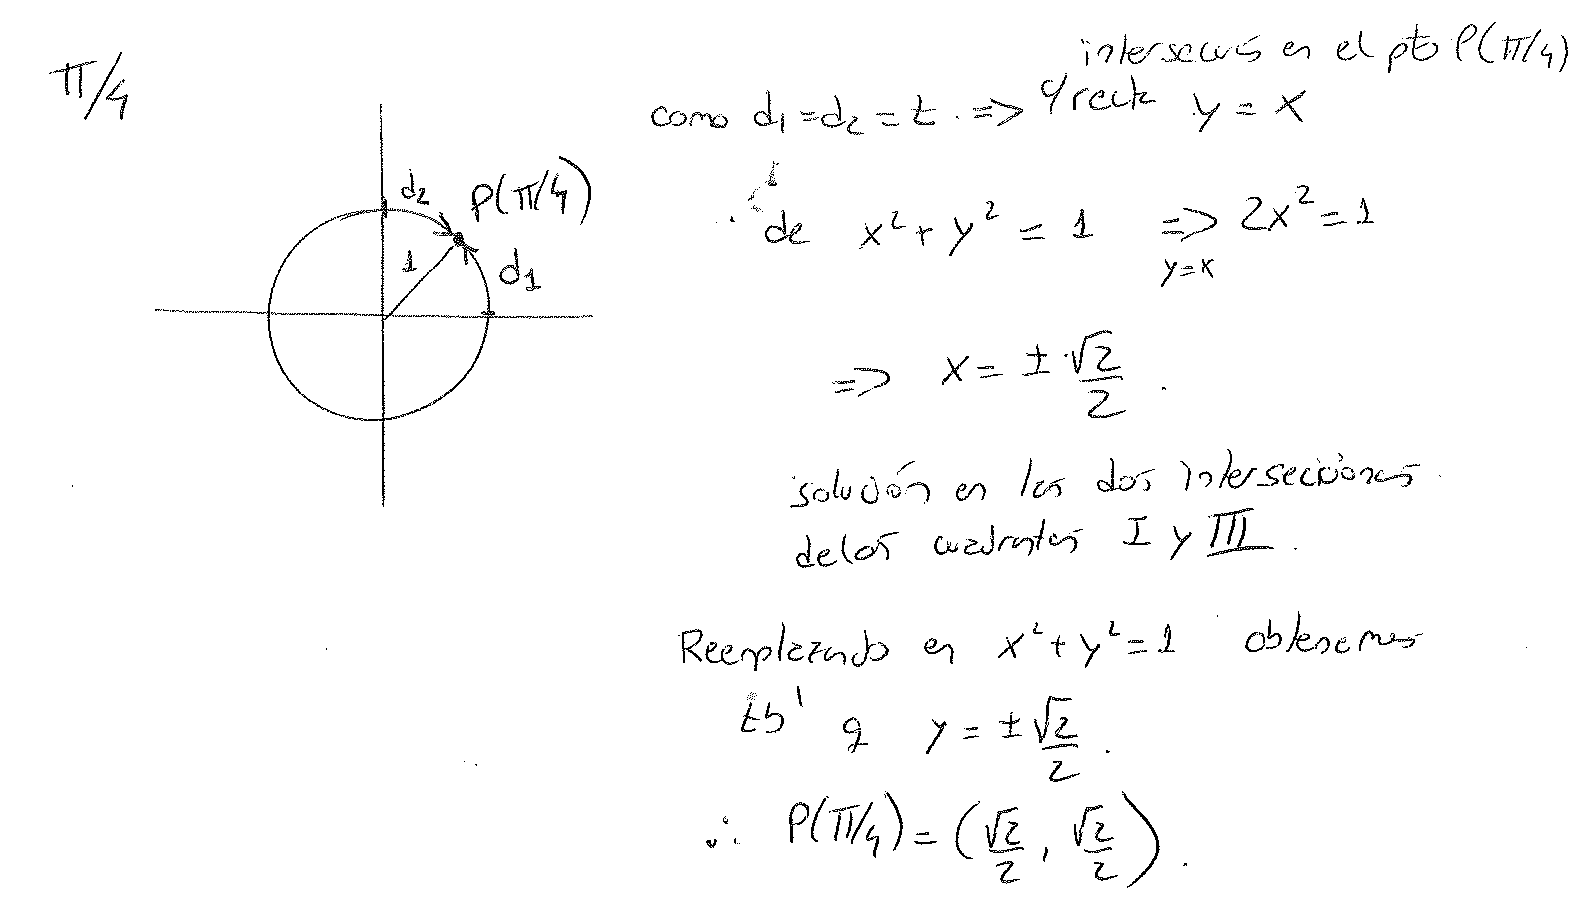 π/4
intersección en el pto P(π/4)
como d₁ = d₂ = t. => c/ recta y = x
d₂
P(π/4)
1
d₁
de x² + y² = 1 => 2x² = 1
y=x
=> x = ± √2/2 .
solución en las dos intersecciones
de los cuadrantes I y III .
Reemplazando en x² + y² = 1 obtenemos
tb' q y = ± √2/2 .
∴ P(π/4) = (√2/2 , √2/2) .